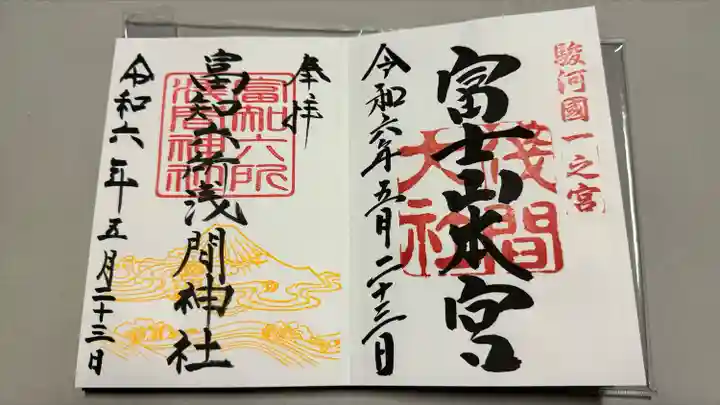 駿河國一之宮
富士山本宮
淺間大社
令和六年五月二十三日
奉拝
富知六所浅間神社
富知六所浅間神社
令和六年五月二十三日